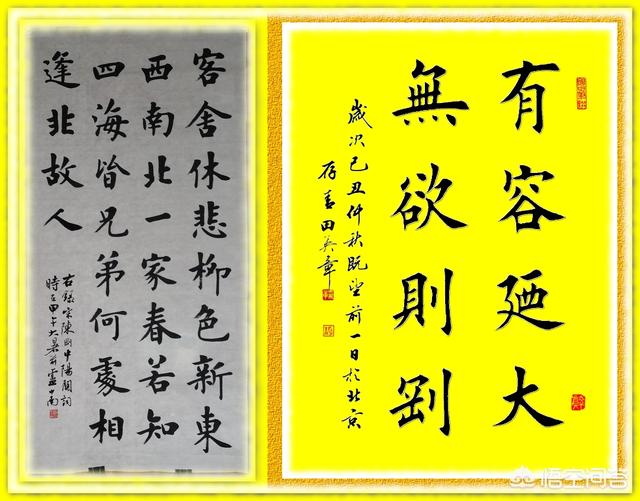 客舍休悲柳色新東
西南北一家春若知
四海皆兄弟何處相
逢非故人
右錄宋陳剛中陽關詞
時在甲午大暑前
有容廼大
無欲則剛
歲次己丑仲秋既望前一日於北京
田英章
悟空问答